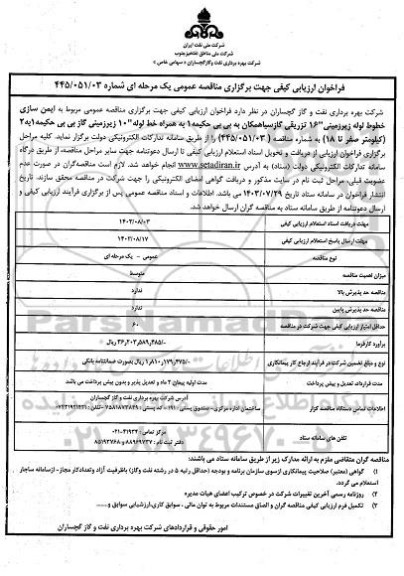 شرکت ملی نفت ایران
شرکت ملی مناطق نفتخیز جنوب
شرکت بهره برداری نفت و گاز گچساران « سهامی خاص »
فراخوان ارزیابی کیفی جهت برگزاری مناقصه عمومی یک مرحله ای شماره ۴۴۵/۰۵۱/۰۳
شرکت بهره برداری نفت و گاز گچساران در نظر دارد فراخوان ارزیابی کیفی جهت برگزاری مناقصه عمومی مربوط به ایمن سازی
خطوط لوله زیرزمینی "۱۶ تزریقی گازسیاهمکان به بی بی حکیمه۱ به همراه خط لوله "۱۰ زیرزمینی گاز بی بی حکیمه۱به۲
(کیلومتر صفر تا ۱۸) به شماره مناقصه ( ۴۴۵/۰۵۱/۰۳) را از طریق سامانه تدارکات الکترونیکی دولت برگزار نماید. کلیه مراحل
برگزاری فراخوان ارزیابی از دریافت و تحویل اسناد استعلام ارزیابی کیفی تا ارسال دعوتنامه جهت سایر مراحل مناقصه، از طریق درگاه
سامانه تدارکات الکترونیکی دولت (ستاد) به آدرس www.setadiran.ir انجام خواهد شد. لازم است مناقصه‌گران در صورت عدم
عضویت قبلی، مراحل ثبت نام در سایت مذکور و دریافت گواهی امضای الکترونیکی را جهت شرکت در مناقصه محقق سازند. تاریخ
انتشار فراخوان در سامانه ستاد تاریخ ۱۴۰۳/۰۷/۲۹ می باشد. اطلاعات و اسناد مناقصه عمومی پس از برگزاری فرآیند ارزیابی کیفی و
ارسال دعوتنامه از طریق سامانه ستاد به مناقصه گران ارسال خواهد شد.
مهلت دریافت اسناد استعلام ارزیابی کیفی ۱۴۰۳/۰۸/۰۳
مهلت ارسال پاسخ استعلام ارزیابی کیفی ۱۴۰۳/۰۸/۱۷
نوع مناقصه عمومی - یک مرحله ای
میزان اهمیت مناقصه متوسط
مناقصه حد پذیرش بالا ندارد
مناقصه حد پذیرش پایین ندارد
حداقل امتیاز ارزیابی کیفی جهت شرکت در مناقصه ۶۰
برآورد کارفرما
نوع و مبلغ تضمین شرکت در فرآیند ارجاع کار پیمانکاری ریال بصورت ضمانتنامه بانکی
مدت قرارداد، تعدیل و پیش پرداخت مدت اولیه پیمان ۲ ماه و تعدیل پذیر و بدون پیش پرداخت می باشد
اطلاعات تماس دستگاه مناقصه گزار آدرس شرکت بهره برداری نفت و گاز گچساران
ساختمان اداره مرکزی - صندوق پستی : ۱۹۱ - کد پستی :
تلفن های سامانه ستاد مرکز تماس : ۴۱۹۳۴-۰۲۱
دفتر ثبت نام : ۸۸۹۶۹۷۳۷ و ۸۵۱۹۳۷۶۸
مناقصه گران متقاضی ملزم به ارائه مدارک زیر از طریق سامانه ستاد می باشند:
۱) گواهی (معتبر) صلاحیت پیمانکاری ازسوی سازمان برنامه و بودجه (حداقل رتبه ۵ در رشته نفت وگاز) باظرفیت آزاد وتعدادکار مجاز- ازسامانه ساجار
استعلام می گردد.
۲) روزنامه رسمی آخرین تغییرات شرکت در خصوص ترکیب اعضای هیات مدیره
۳) تکمیل فرم ارزیابی کیفی مناقصه گران و الصاق مستندات مربوط به توان مالی ، سوابق کاری،ارزشیابی سوابق و.....
امور حقوقی و قراردادهای شرکت بهره برداری نفت و گاز گچساران